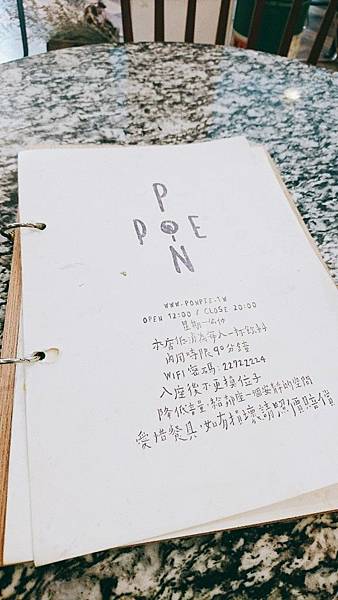 P
P O E
N
WWW.PONPIE.TW
OPEN 12:00 / CLOSE 20:00
星期一公休
本店低消為每人一杯飲料
內用時限90分鐘
WIFI 密碼:22722224
入座後不更換位子
降低音量,給鄰座一個安靜的空間
愛惜餐具,如有損壞請照價賠償